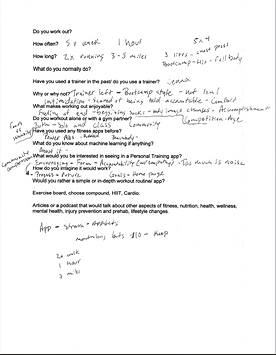 Do you work out?
How often? 5 x week 1 hour 5 n 4
How long? 2x running 3-5 miles 3 lifts -
Bootcamp - Hiit - Full body
What do you normally do?
Have you used a trainer in the past/ do you use a trainer?
Why or why not? Trainer left - Bootcamp style - not 1 on 1
intimidation - scared of being told accountable - comfort
What makes working out enjoyable?
Feeling at end - body image changes - Accomplishment
Do you workout alone or with a gym partner? Competition - age
and class community
Have you used any fitness apps before?
Power Abs -
What do you know about machine learning if anything?
About it -
What would you be interested in seeing in a Personal Training app?
Encouraging - Form - Accountability - Too much is noise
How do you imagine it would work?
Progress = Picture Goals = Home page
Would you rather a simple or in-depth workout routine/ app?
Exercise board, choose compound, HIIT, Cardio.
Articles or a podcast that would talk about other aspects of fitness, nutrition, health, wellness,
mental health, injury prevention and prehab, lifestyle changes.
App = Strava =
$10 - Keep
2x walk
1 hour
3 miles